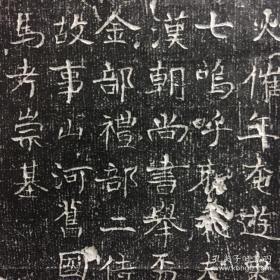 火催年奄遊
七嗚呼哀
漢朝尚書舉
金部禮部二
故事山河舊國
馬考崇基
孔夫子旧书网